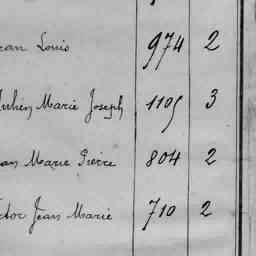 ean Louis 974 2
Julien Marie Joseph 1105 3
ean Marie Pierre 804 2
ictor Jean Marie 710 2